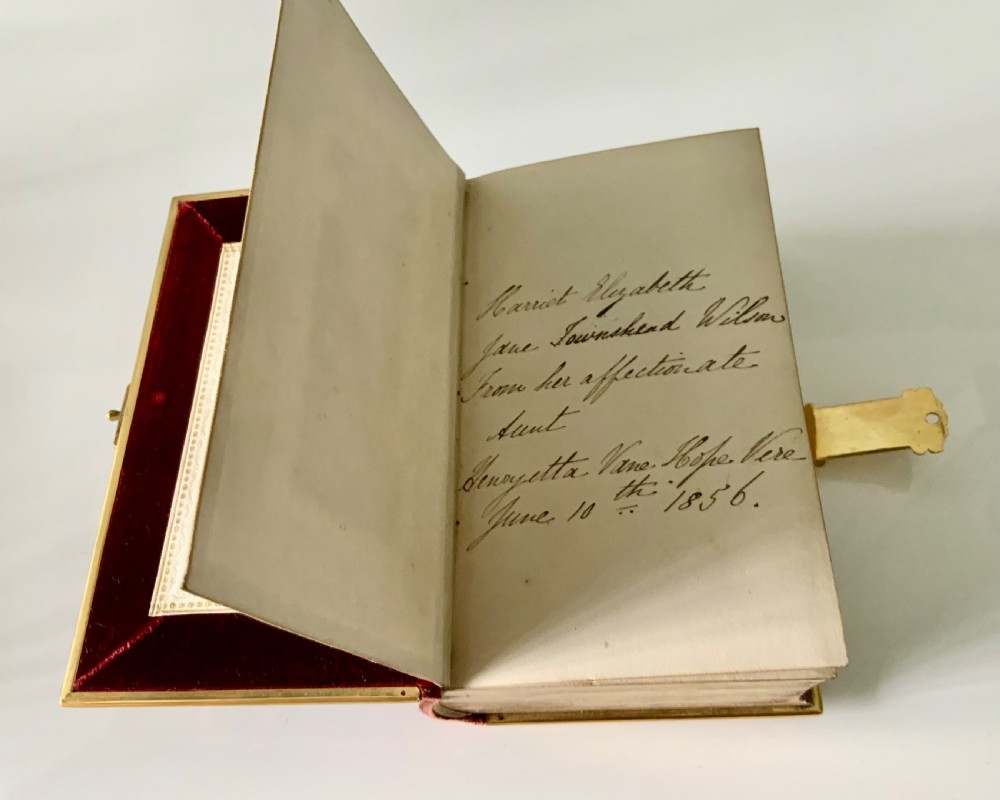 Harriet Elizabeth
Jane Townshend Wilson
From her affectionate
Aunt
Henryetta Vane Hope Vere
June 10th 1856.